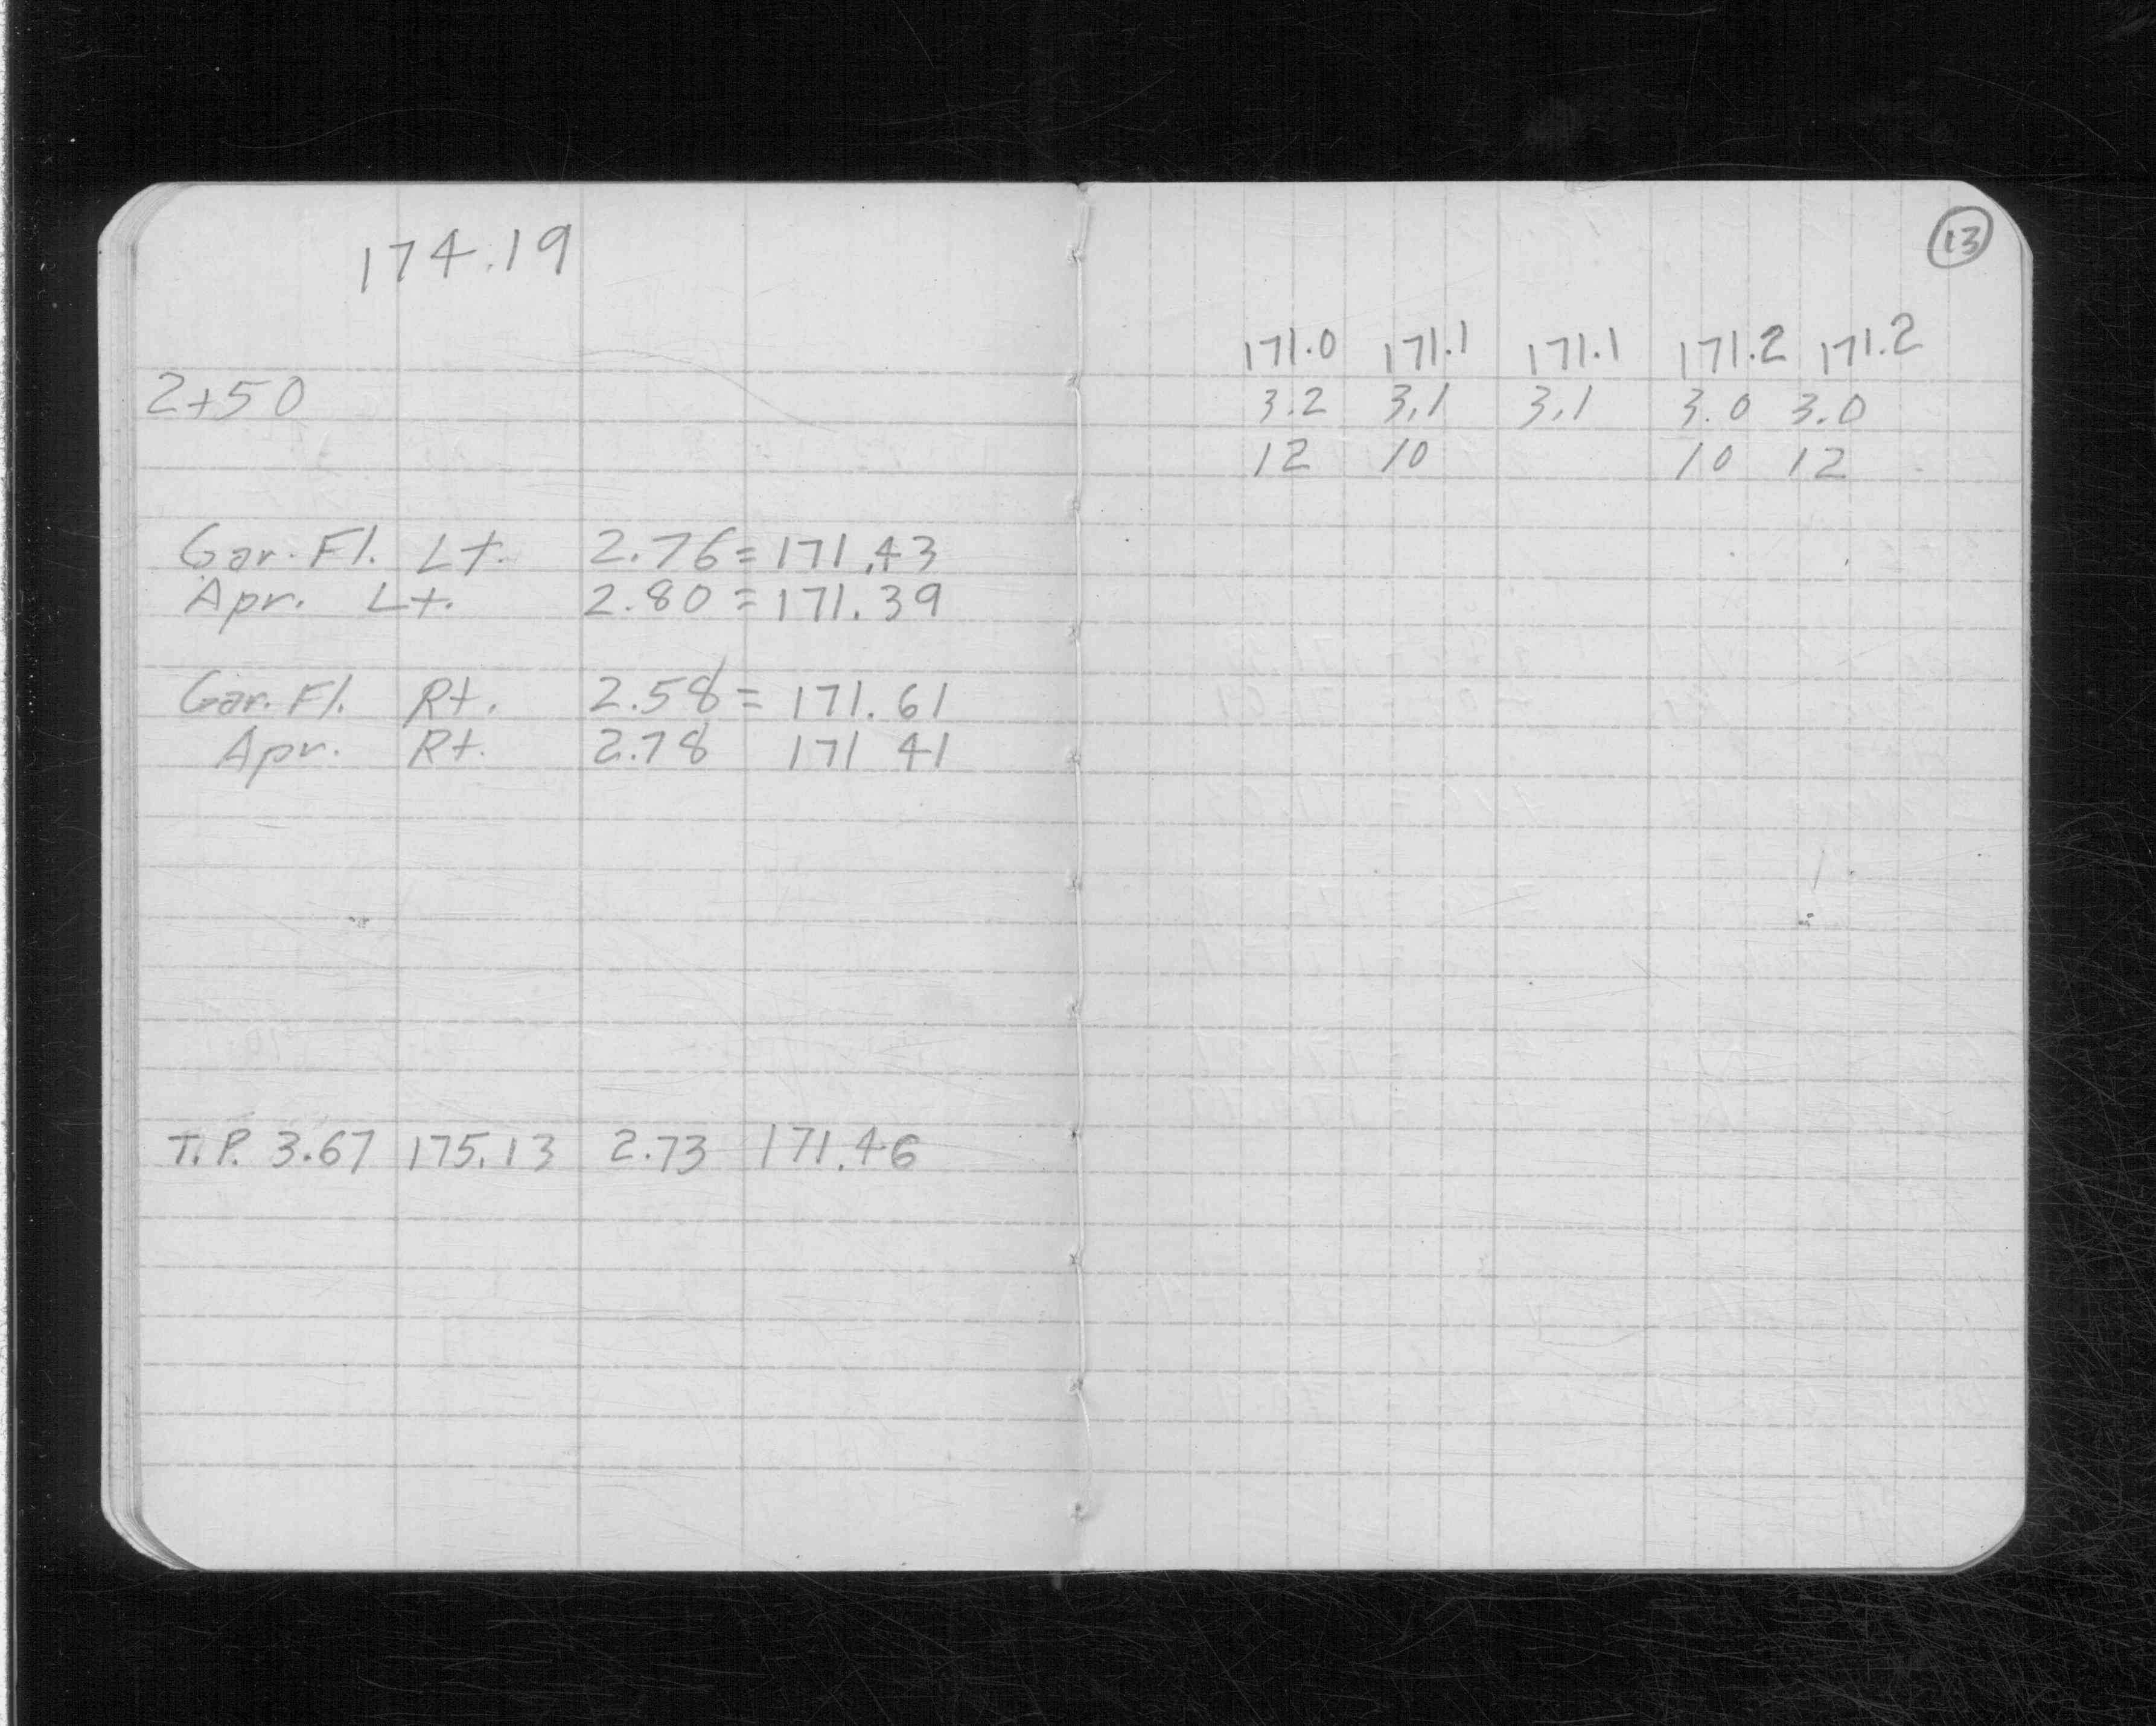 174.19
2+50
Gar. Fl. Lt. 2.76 = 171.43
Apr. Lt. 2.80 = 171.39
Gar. Fl. Rt. 2.58 = 171.61
Apr. Rt. 2.78 171 41
T.P. 3.67 175.13 2.73 171.46
13
171.0 171.1 171.1 171.2 171.2
3.2 3.1 3.1 3.0 3.0
12 10 10 12